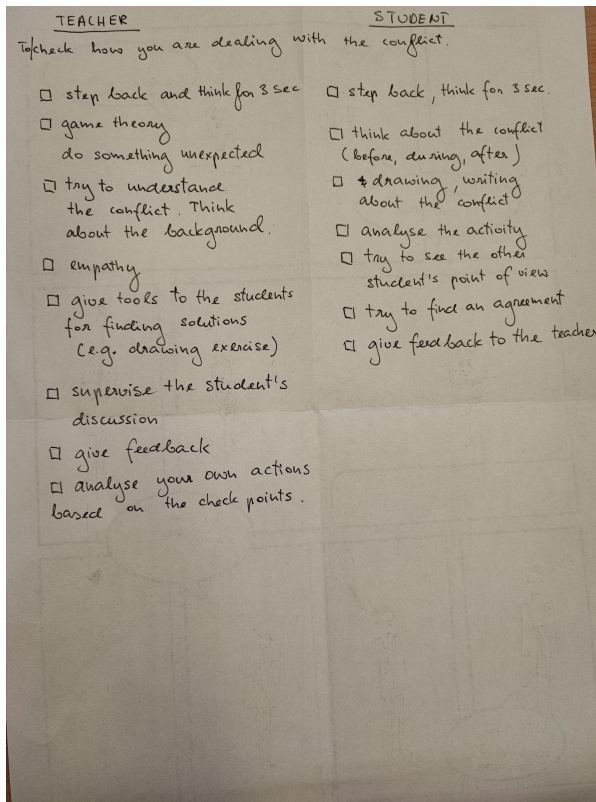 TEACHER
STUDENT
To check how you are dealing with the conflict.
step back and think for 3 sec
game theory
do something unexpected
try to understand
the conflict. Think
about the background.
empathy
give tools to the students
for finding solutions
(e.g. drawing exercise)
supervise the student's
discussion
give feedback
analyse your own actions
based on the check points.
step back, think for 3 sec.
think about the conflict
(before, during, after)
drawing, writing
about the conflict
analyse the activity
try to see the other
student's point of view
try to find an agreement
give feedback to the teacher